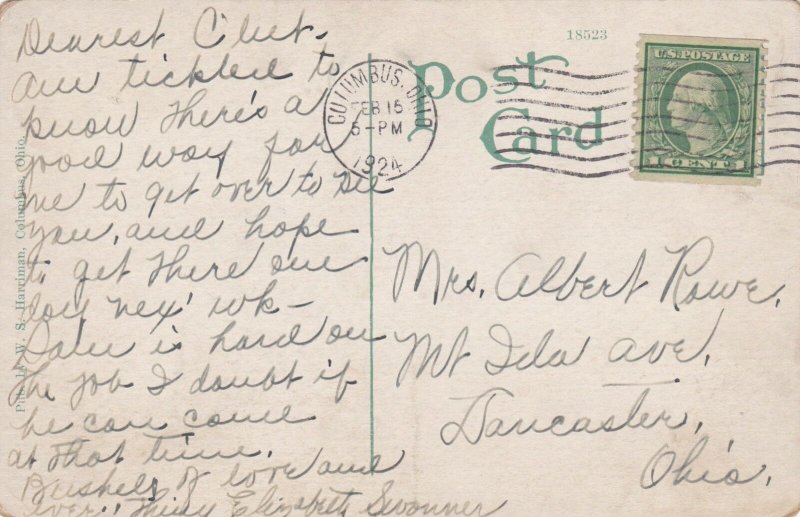 Dearest
am tickled to
know there's a
good way for
me to get over to see
you, and hope
to get there one
day nex' wk-
is hard on
the job I doubt if
he can come
at that time.
Bushels of love and
Elizabeth Swonner
W. S. Harriman, Columbus, Ohio.
COLUMBUS, OHIO
FEB 15
5-PM
1924
18523
Post
Card
U.S. POSTAGE
1 CENT 1
Mrs. Albert Rowe,
Mt Ida Ave,
Lancaster,
Ohio.